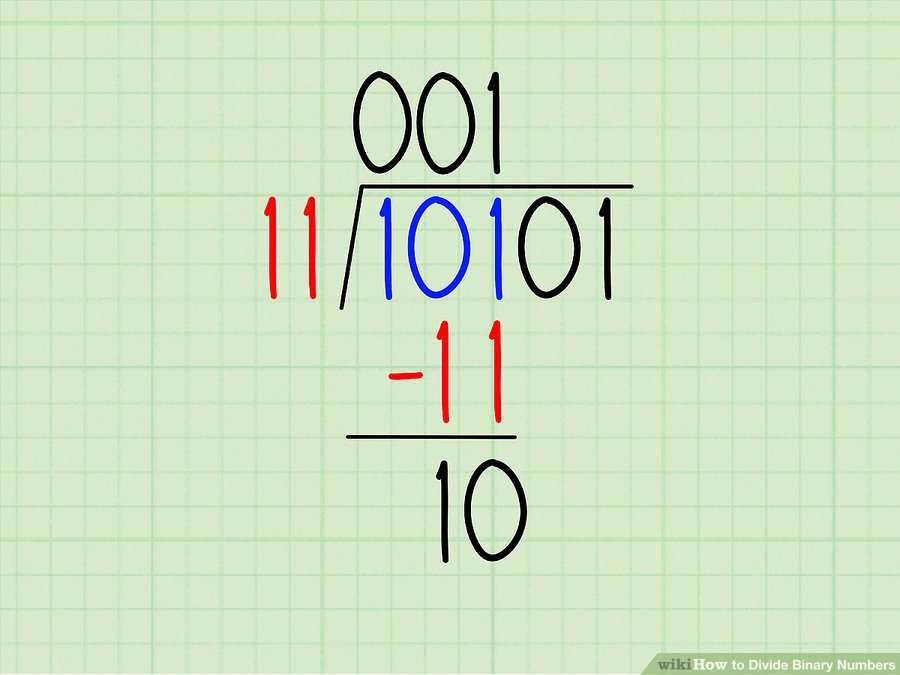 001
11 10101
-11
10
wikiHow to Divide Binary Numbers